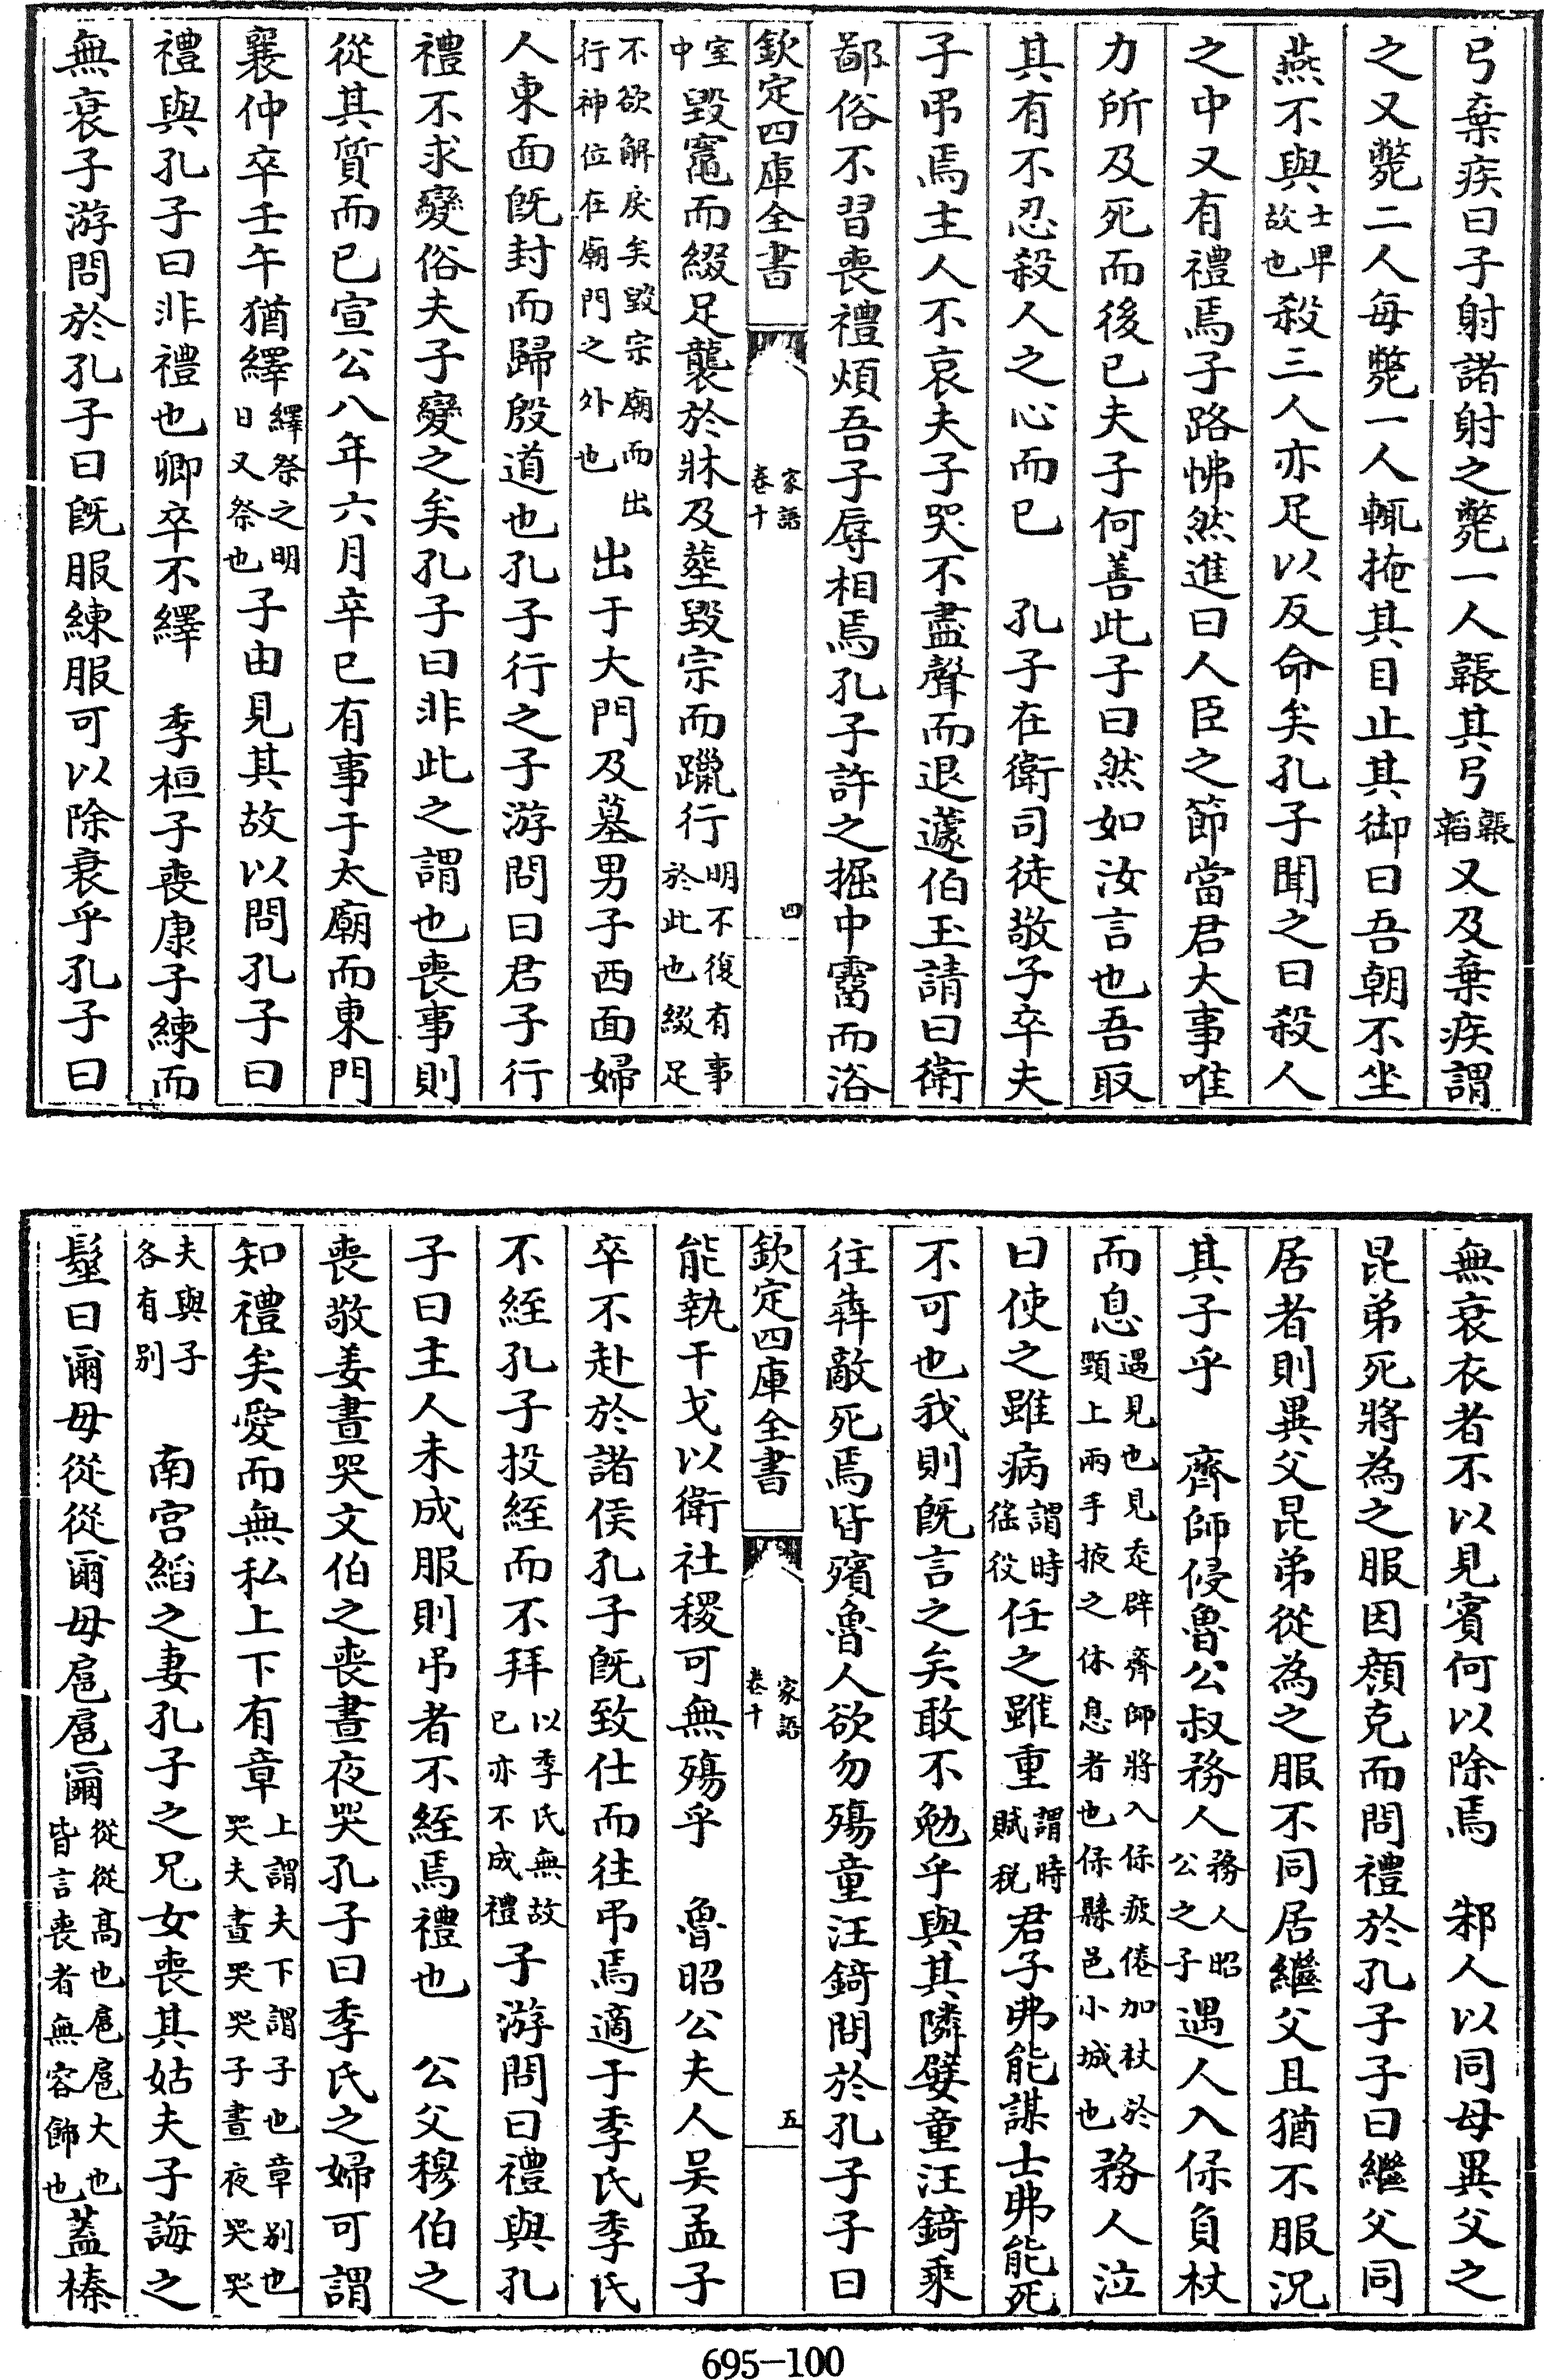 弓棄疾曰子射諸射之斃一人韔其弓韔韜又及棄疾謂
之又斃二人每斃一人輒掩其目止其御曰吾朝不坐
燕不與士卑故也殺三人亦足以反命矣孔子聞之曰殺人
之中又有禮焉子路怫然進曰人臣之節當君大事唯
力所及死而後已夫子何善此子曰然如汝言也吾取
其有不忍殺人之心而已　孔子在衛司徒敬子卒夫
子弔焉主人不哀夫子哭不盡聲而退蘧伯玉請曰衛
鄙俗不習喪禮煩吾子辱相焉孔子許之掘中霤而浴
欽定四庫全書　家語卷十　四
室中毀竈而綴足襲於牀及塟毀宗而躐行明不復有事於此也綴足
不欲解戾矣毀宗廟而出行神位在廟門之外也出于大門及墓男子西面婦
人東面旣封而歸殷道也孔子行之子游問曰君子行
禮不求變俗夫子變之矣孔子曰非此之謂也喪事則
從其質而已宣公八年六月辛巳有事于太廟而東門
襄仲卒壬午猶繹繹祭之明日又祭也子由見其故以問孔子曰
禮與孔子曰非禮也卿卒不繹　季桓子喪康子練而
無衰子游問於孔子曰旣服練服可以除衰乎孔子曰
無衰衣者不以見賓何以除焉　邾人以同母異父之
昆弟死將為之服因顏克而問禮於孔子子曰繼父同
居者則異父昆弟從為之服不同居繼父且猶不服況
其子乎　齊師侵魯公叔務人務人昭公之子遇人入保負杖
而息遇見也見走辟齊師將入保疲倦加杖於頸上兩手掖之休息者也保縣邑小城也務人泣
曰使之雖病謂時徭役任之雖重謂時賦稅君子弗能謀士弗能死
不可也我則旣言之矣敢不勉乎與其隣嬖童汪錡乘
往犇敵死焉皆殯魯人欲勿殤童汪錡問於孔子子曰
欽定四庫全書　家語卷十　五
能執干戈以衛社稷可無殤乎　魯昭公夫人吳孟子
卒不赴於諸侯孔子旣致仕而往弔焉適于季氏季氏
不絰孔子投絰而不拜以季氏無故己亦不成禮子游問曰禮與孔
子曰主人未成服則弔者不絰焉禮也　公父穆伯之
喪敬姜晝哭文伯之喪晝夜哭孔子曰季氏之婦可謂
知禮矣愛而無私上下有章上謂夫下謂子也章别也哭夫晝哭哭子晝夜哭哭
夫與子各有别　南宮縚之妻孔子之兄女喪其姑夫子誨之
髽曰爾毋從從爾毋扈扈爾從從髙也扈扈大也皆言喪者無容飾也蓋榛
695-100